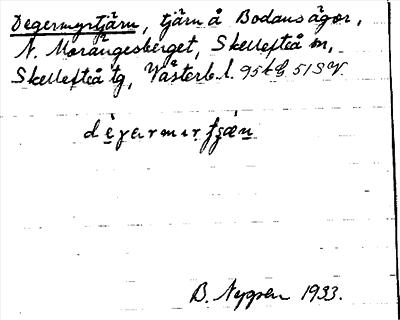 Degermyrtjärn, tjärn å Bodans ägor,
N. Morångesberget, Skellefteå sn,
Skellefteå tg, Västerb. l.
B. Nygren 1933.